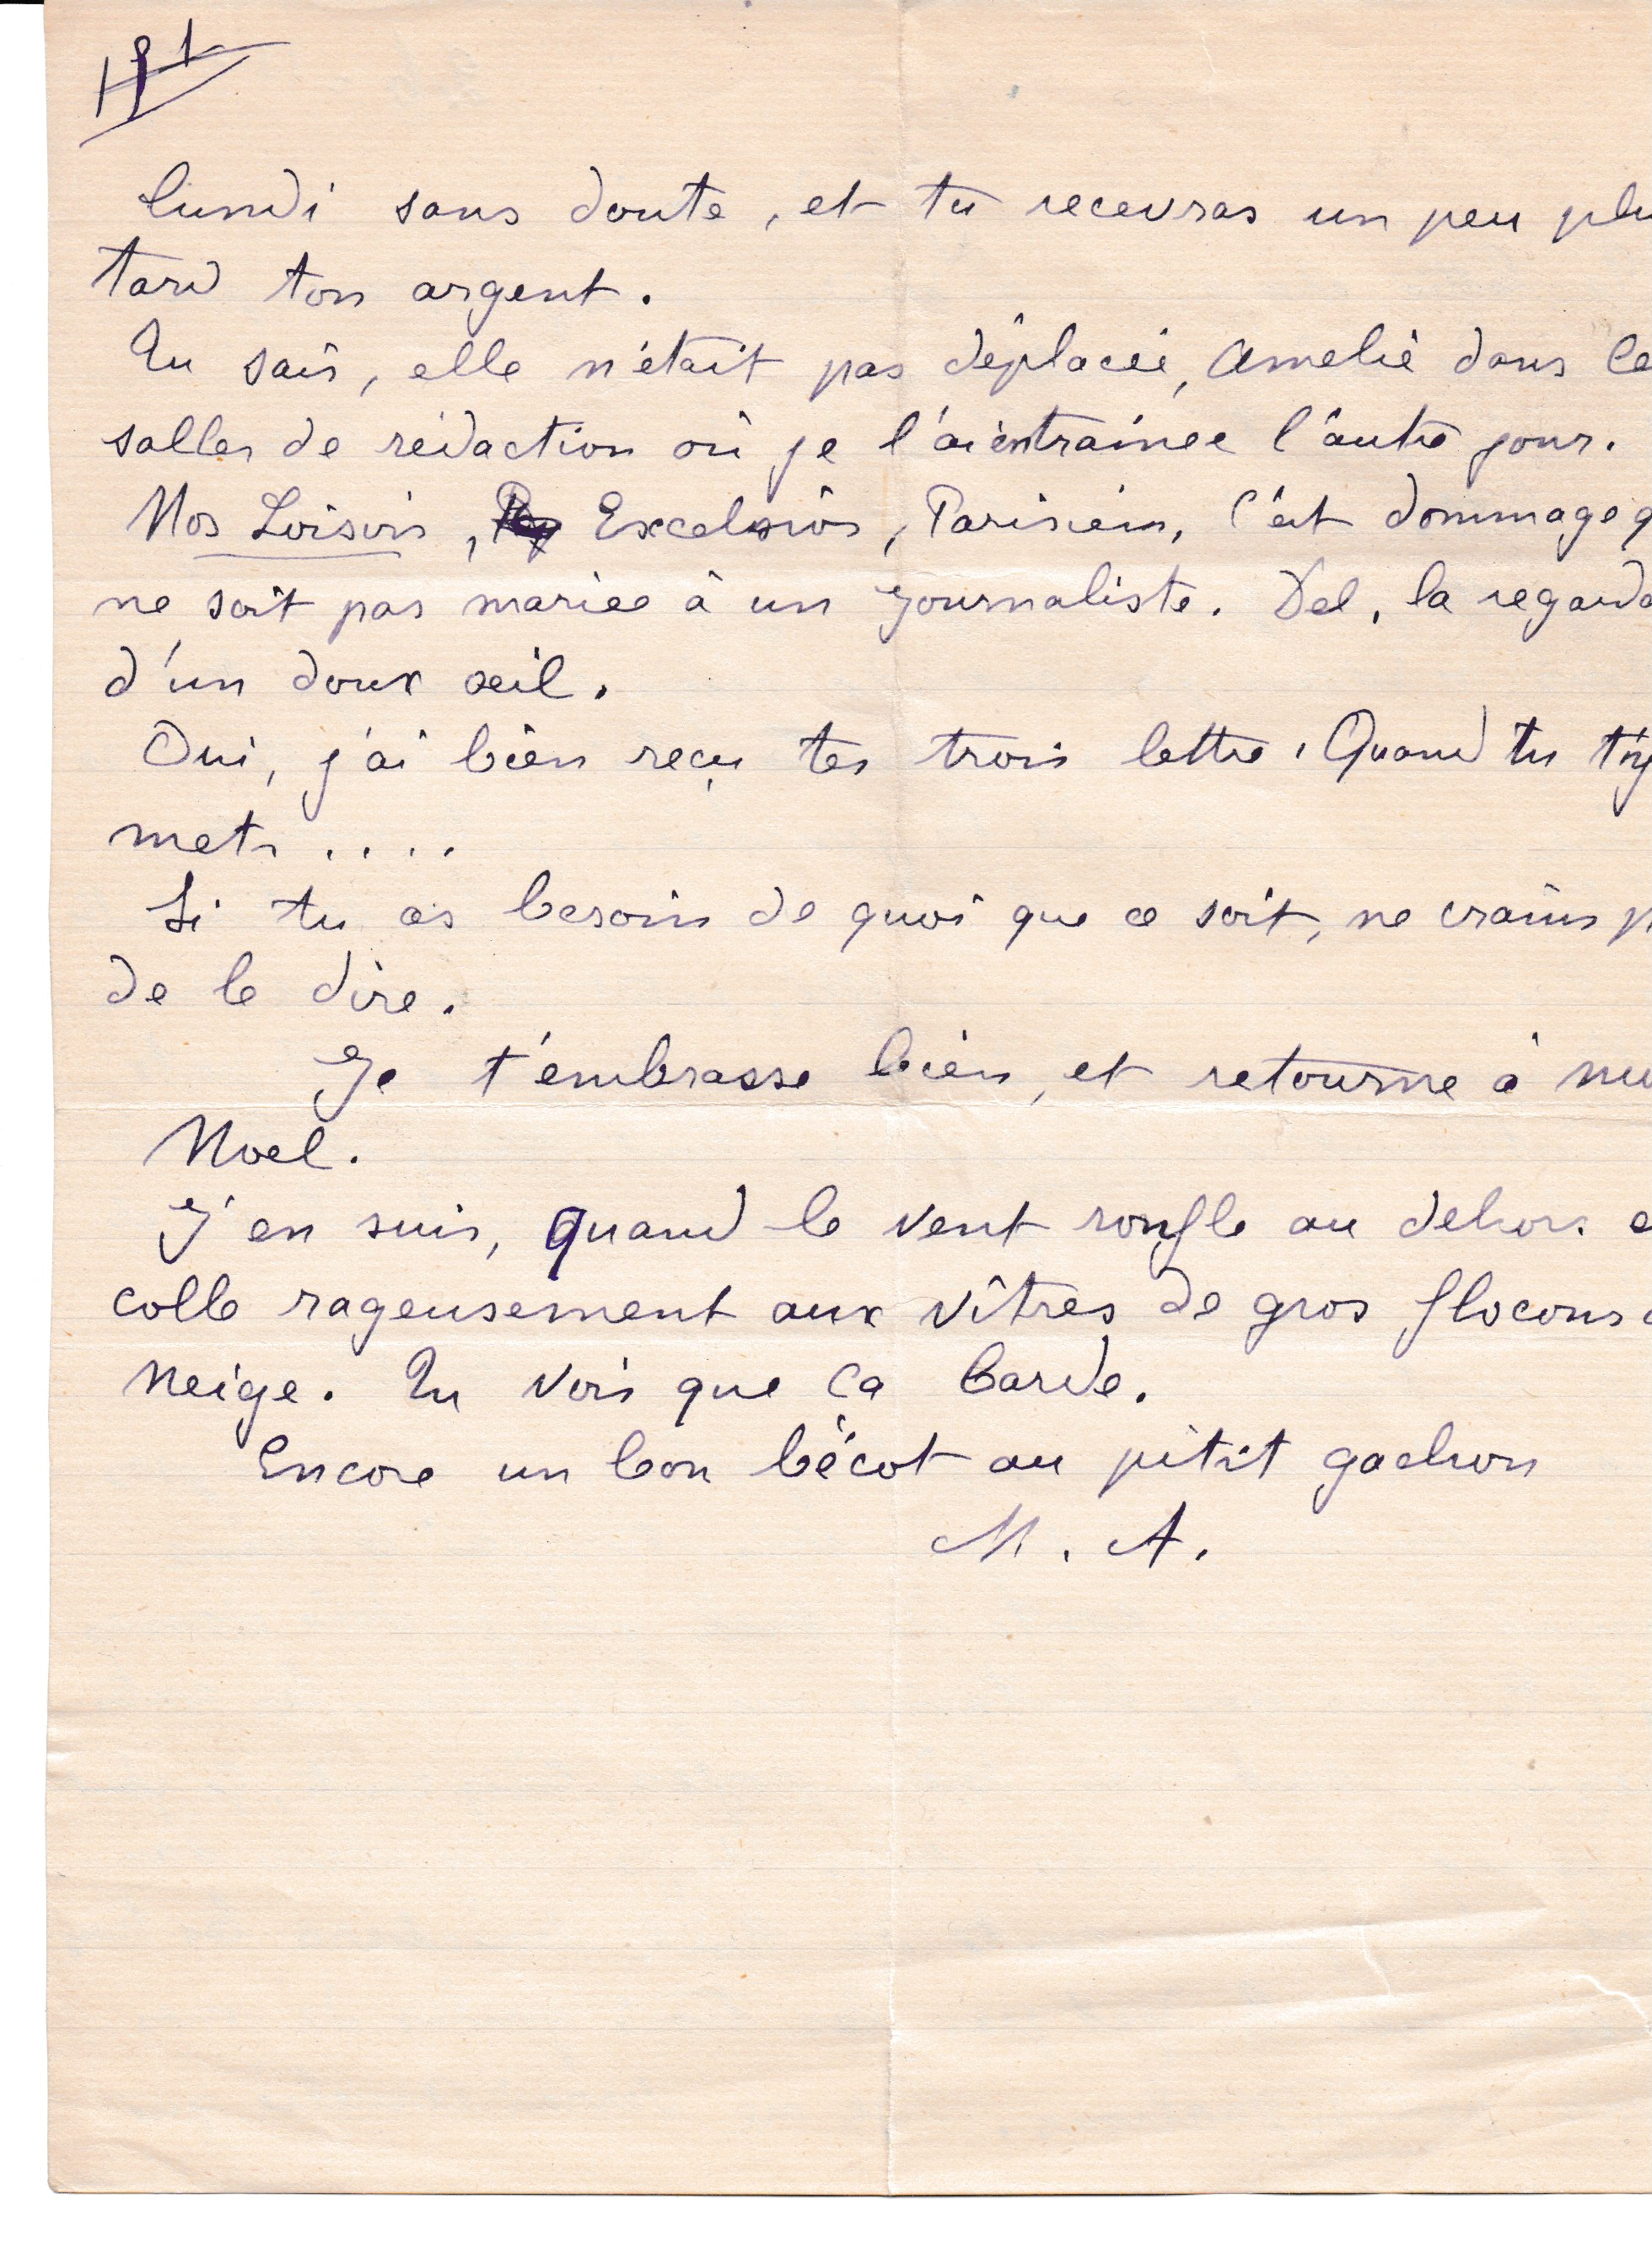 lundi sans doute, et tu recevras un peu plu
tard ton argent.
Tu sais, elle n'était pas déplacée, Amelie dans le
salles de rédaction où je l'ai entrainée l'autre jour.
Nos Loisirs, Excelsior, Parisien, c'est dommage q
ne soit pas mariée à un journaliste. Del. la regarda
d'un doux oeil.
Oui, j'ai bien reçu tes trois lettre. Quand tu t'y
mets ....
Si tu as besoin de quoi que ce soit, ne crains p
de le dire.
Je t'embrasse bien, et retourne à
Noel.
J'en suis, quand le vent ronfle au dehors e
colle rageusement aux vîtres de gros flocons d
neige. Tu vois que ça barde.
Encore un bon bécot au pitit gachon
M. A.